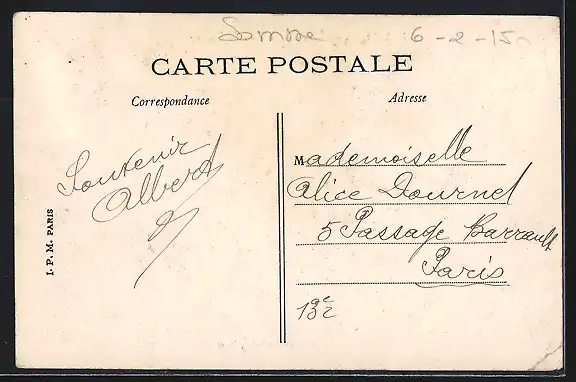 Somme 6-2-15
CARTE POSTALE
Correspondance
Adresse
Souvenir
Albert
I. P. M. PARIS
Mademoiselle
Alice Dournel
5 Passage Barrault
Paris
13e